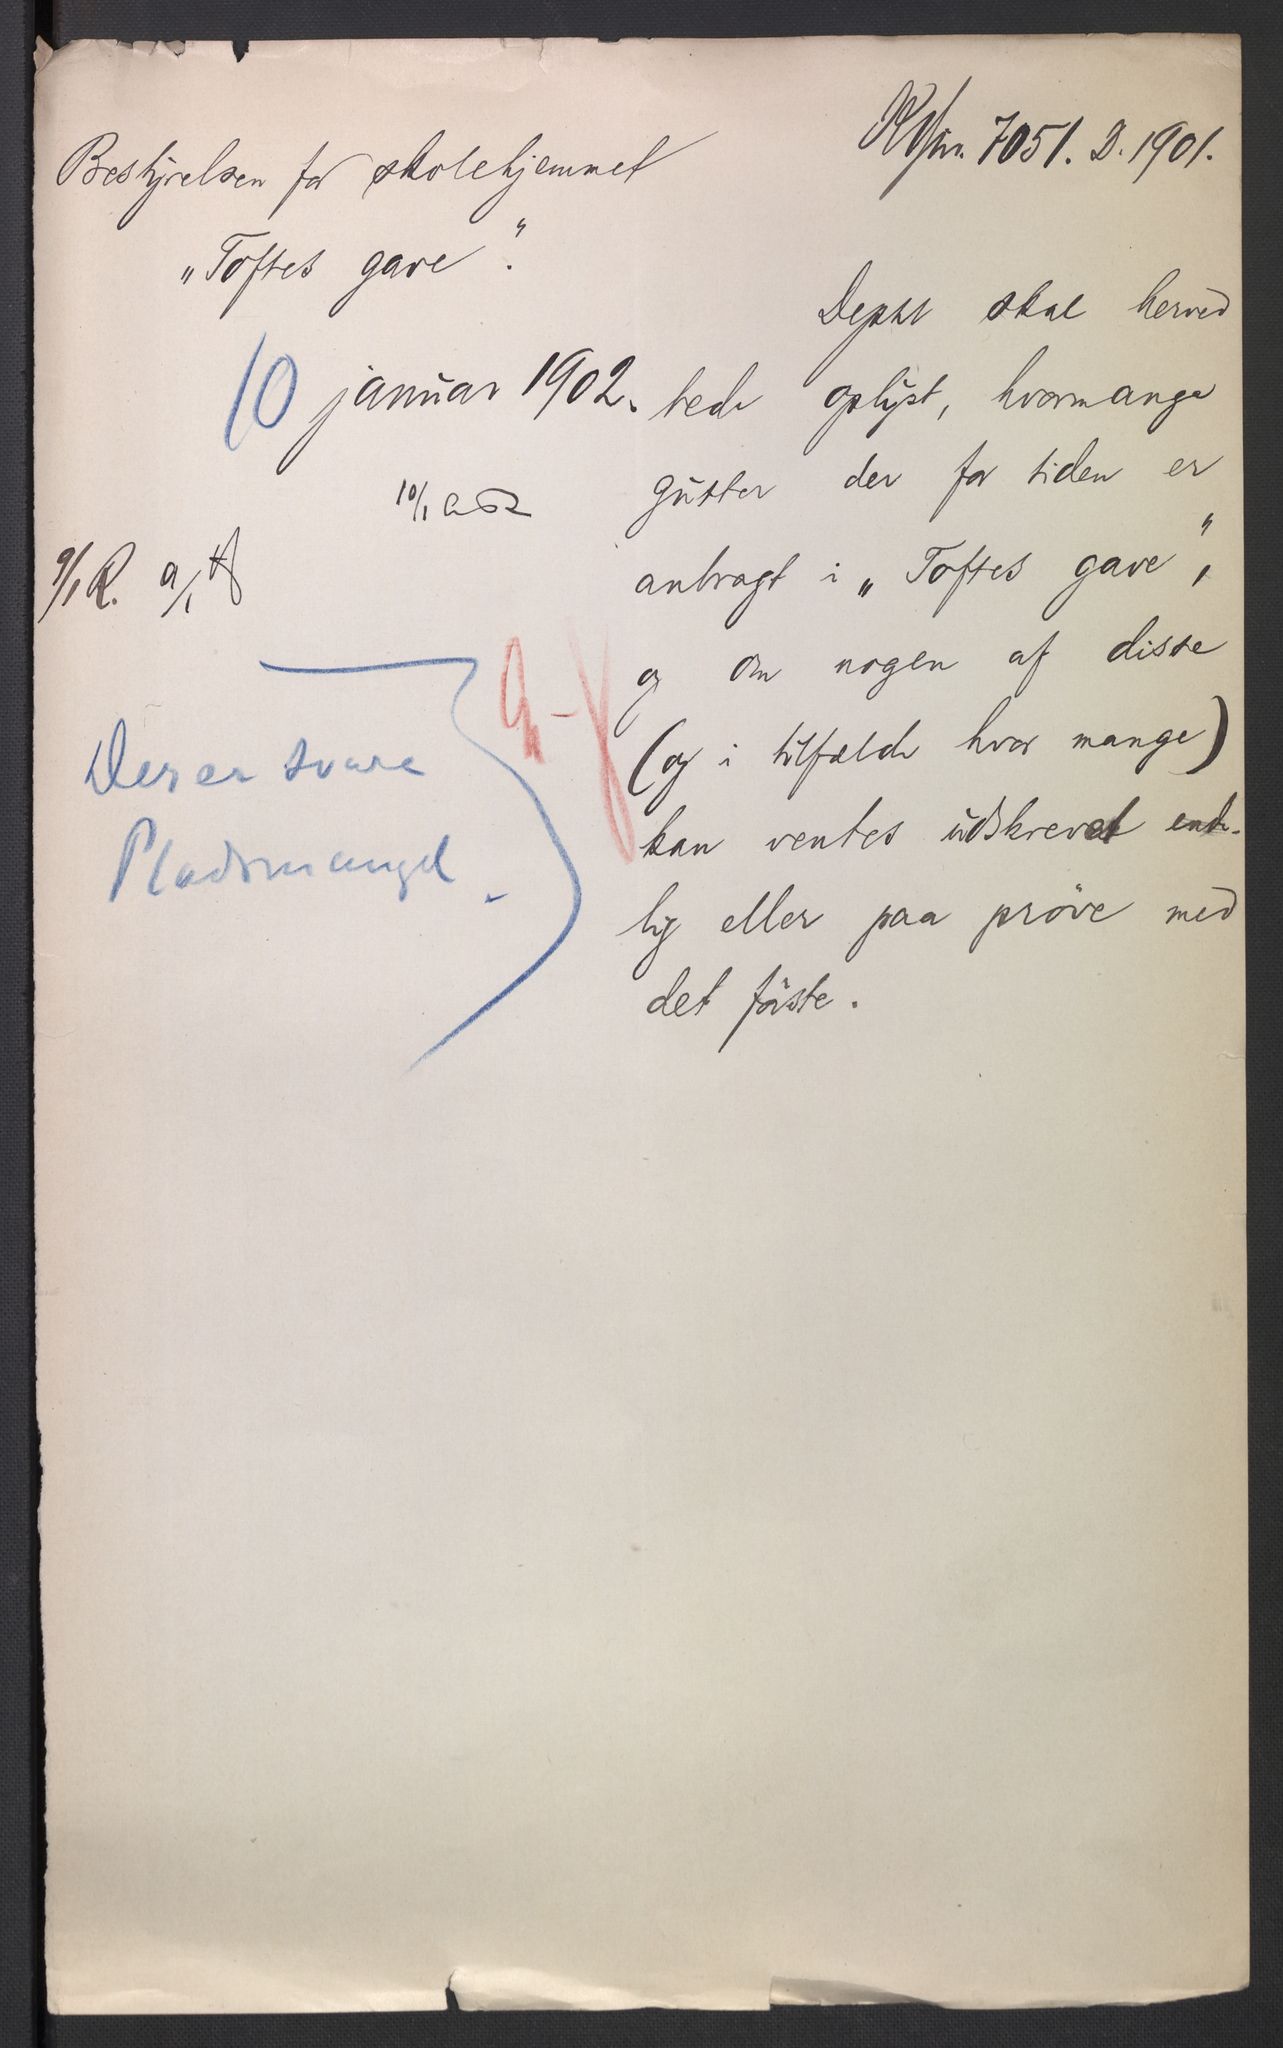 Kbfnr. 7051. D. 1901.
Bestyrelsen for skolehjemmet
„Toftes gave".
10 januar 1902.
10/1
9/1 R. 9/1
Depht skal herved
bede oplyst, hvormange
gutter der for tiden er
anbragt i „Toftes gave",
og om nogen af disse
(og i tilfælde hvor mange)
kan ventes udskrevet ende-
lig eller paa pröve med
det förste.
Der er svare
Pladsmangel.